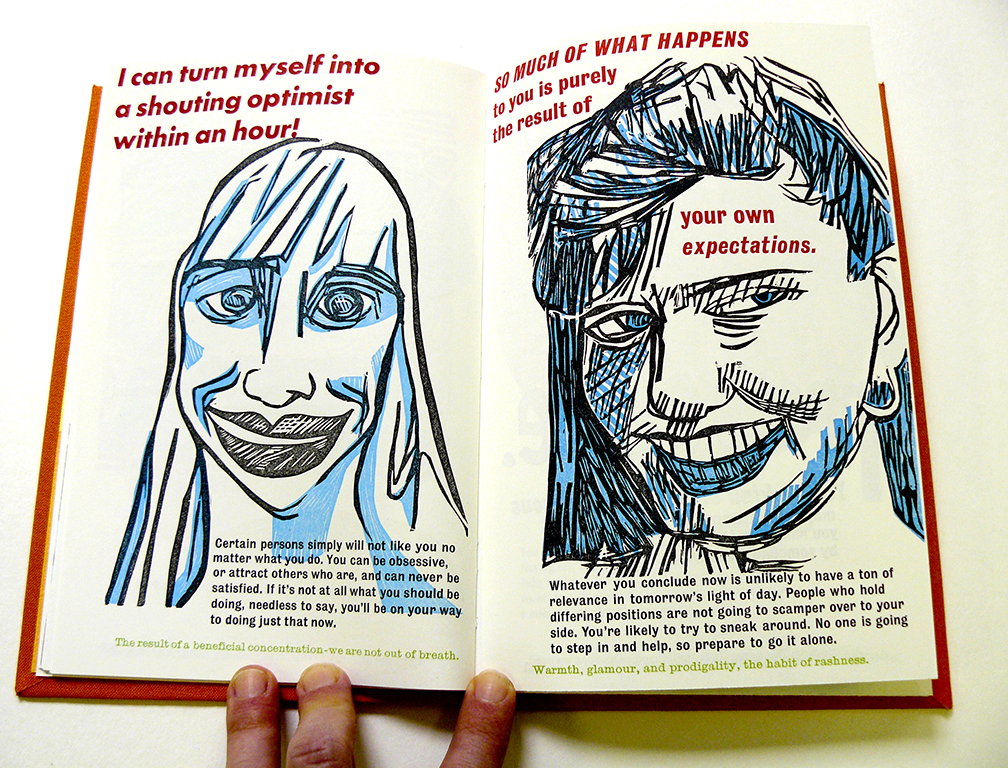 I can turn myself into
a shouting optimist
within an hour!
Certain persons simply will not like you no
matter what you do. You can be obsessive,
or attract others who are, and can never be
satisfied. If it's not at all what you should be
doing, needless to say, you'll be on your way
to doing just that now.
The result of a beneficial concentration-we are not out of breath.
SO MUCH OF WHAT HAPPENS
to you is purely
the result of
your own
expectations.
Whatever you conclude now is unlikely to have a ton of
relevance in tomorrow's light of day. People who hold
differing positions are not going to scamper over to your
side. You're likely to try to sneak around. No one is going
to step in and help, so prepare to go it alone.
Warmth, glamour, and prodigality, the habit of rashness.